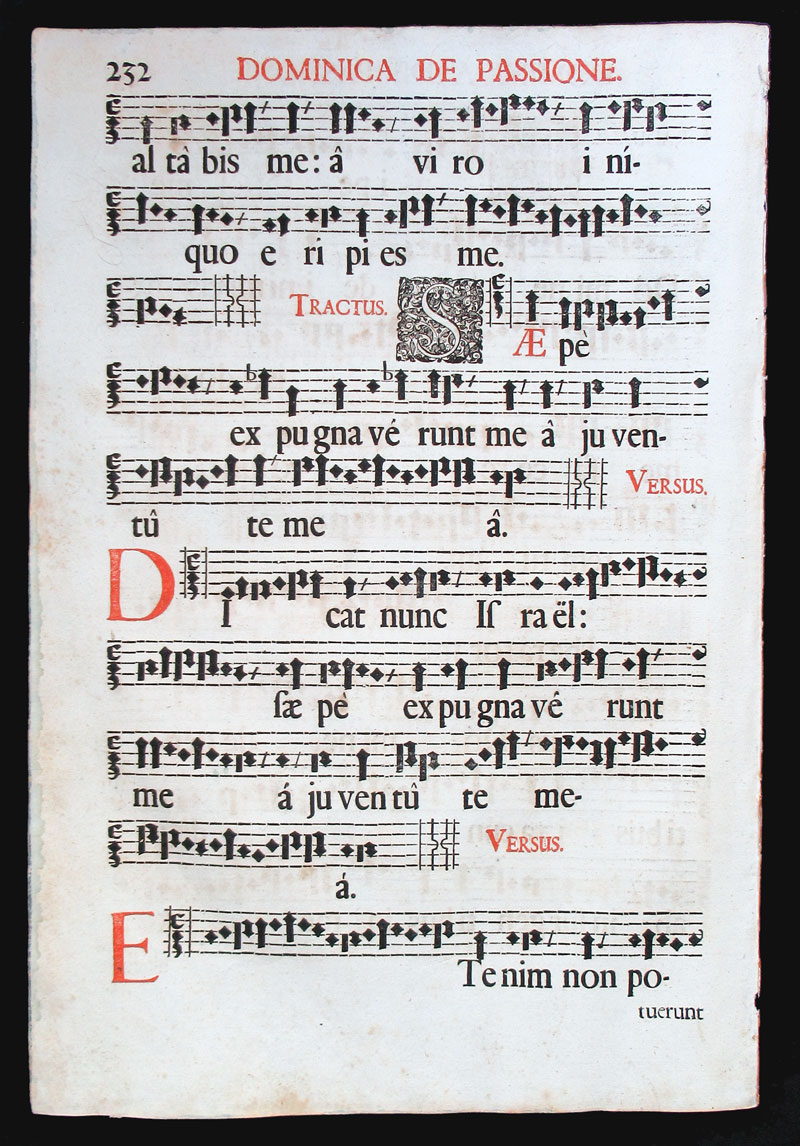 232 DOMINICA DE PASSIONE.
al tà bis me: â vi ro i ní-
quo e ri pi es me.
TRACTUS. SÆ pè
ex pu gna vé runt me â ju ven-
tû te me â. VERSUS.
DI cat nunc Iſ ra ël:
ſæ pè ex pu gna vé runt
me á ju ven tû te me-
á. VERSUS.
ETe nim non po-
tuerunt